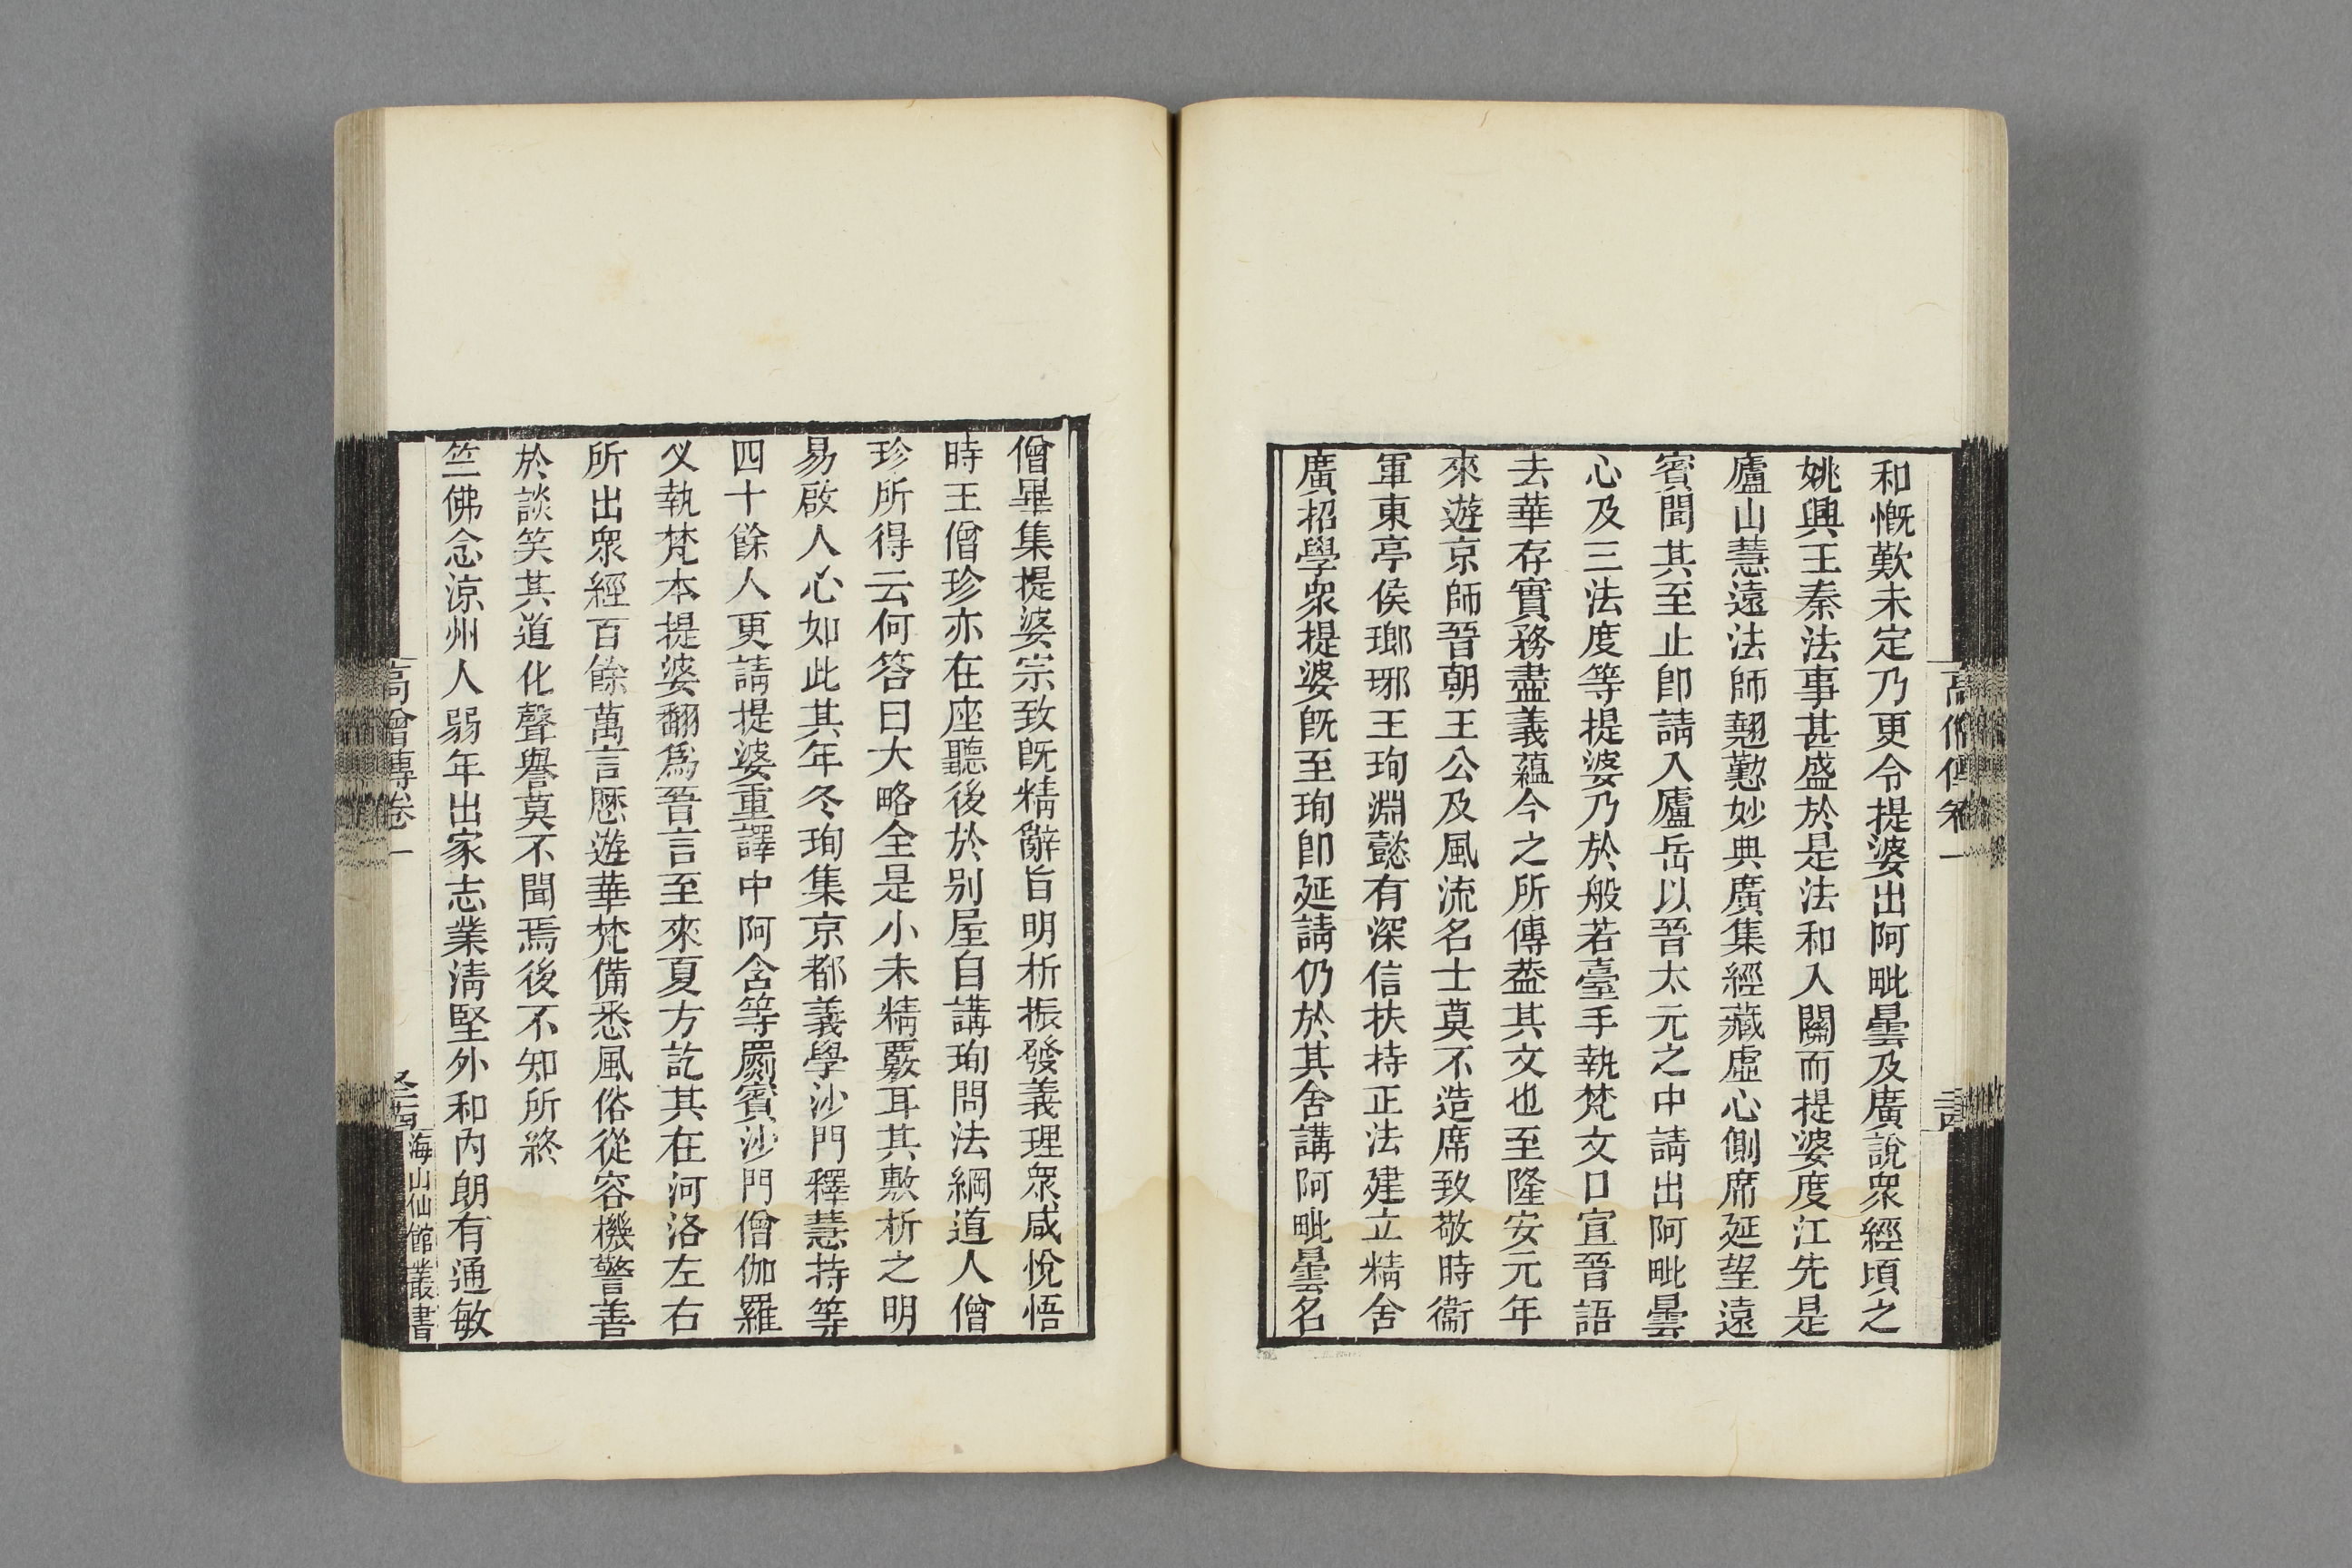 和慨歎未定乃更令提婆出阿毗曇及廣說衆經頃之
姚興王秦法事甚盛於是法和入關而提婆度江先是
廬山慧遠法師翹懃妙典廣集經藏虛心側席延望遠
賓聞其至止卽請入廬岳以晉太元之中請出阿毗曇
心及三法度等提婆乃於般若臺手執梵文口宣晉語
去華存實務盡義蘊今之所傳葢其文也至隆安元年
來遊京師晉朝王公及風流名士莫不造席致敬時衞
軍東亭侯瑯琊王珣淵懿有深信扶持正法建立精舍
廣招學衆提婆旣至珣卽延請仍於其舍講阿毗曇名
僧畢集提婆宗致旣精辭旨明析振發義理衆咸悅悟
時王僧珍亦在座聽後於別屋自講珣問法綱道人僧
珍所得云何答曰大略全是小未精覈耳其敷析之明
易啟人心如此其年冬珣集京都義學沙門釋慧持等
四十餘人更請提婆重譯中阿含等罽賓沙門僧伽羅
义執梵本提婆翻爲晉言至來夏方訖其在河洛左右
所出衆經百餘萬言歷遊華梵備悉風俗從容機警善
於談笑其道化聲譽莫不聞焉後不知所終
竺佛念涼州人弱年出家志業淸堅外和內朗有通敏
高僧傳卷一
海山仙館叢書